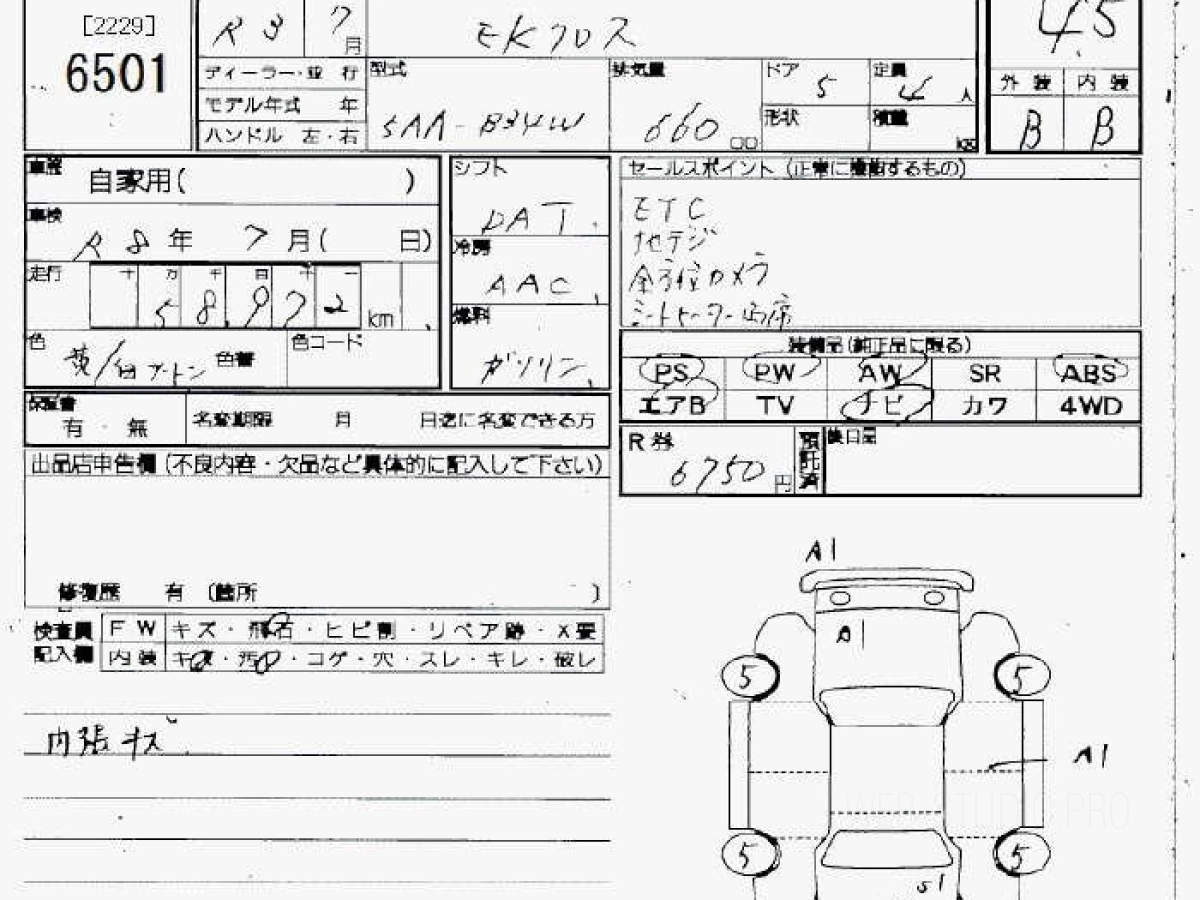 [2229]
6501
R 3 7月
EKクロス
4.5
ディーラー・並行
モデル年式 年
ハンドル 左・右
型式
5AA-B34W
排気量
660 cc
ドア 5
定員 4 人
形状
積載 kg
外装 内装
B B
車歴
自家用( )
車検
R 8年 7月( 日)
走行
十 万 千 百 十 一
5 8,9 7 2 km
色
黄/白ツートン
色替
色コード
シフト
DAT
冷房
AAC
燃料
ガソリン
セールスポイント (正常に機動するもの)
ETC
地デジ
全方位カメラ
シートヒーター両席
装備品(純正品に限る)
PS PW AW SR ABS
エアB TV ナビ カワ 4WD
保証書
有・無
名変期限 月 日迄に名変できる方
R券
6750円
預託済
出品店申告欄(不良内容・欠品など具体的に記入して下さい)
修復歴 有 〔箇所 〕
検査員記入欄
FW キズ・飛石・ヒビ割・リペア跡・X要
内装 ・汚・コゲ・穴・スレ・キレ・破レ
内張キズ
A1
A1
5 5
A1
5 5
S1
WEB STUDIO PRO